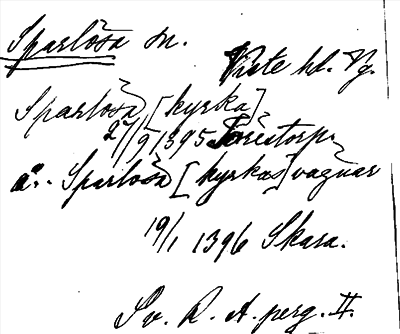 Sparlösa sn.
Viste hd. Vg.
Sparlösa [kyrka]
27/9 1395 Torestorp.
a.. Sparlösa [kyrkas] vagnar
19/1 1396 Skara.
Sv. R. A. perg. II.